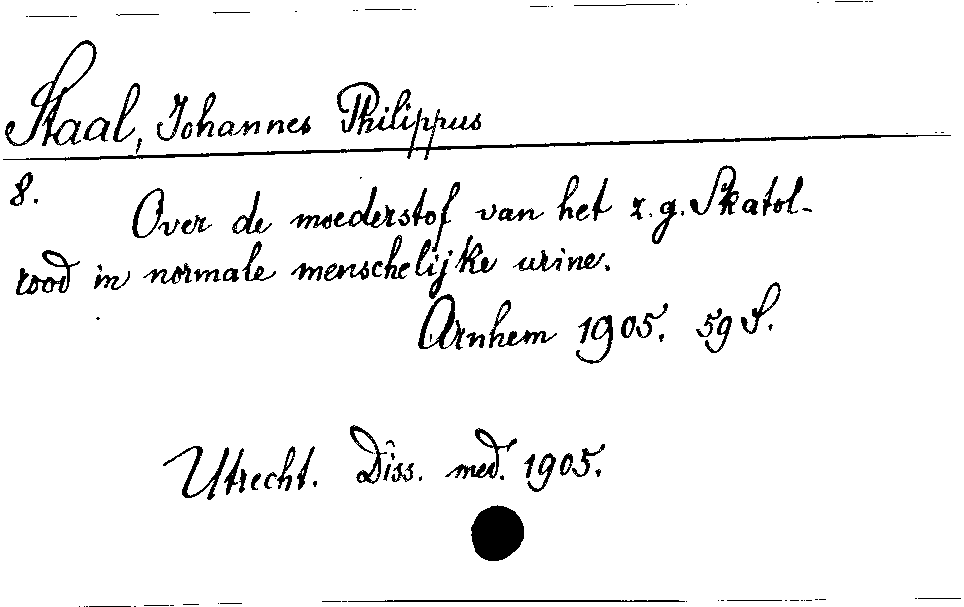 Staal, Johannes Philippus
8.
Over de moederstof van het z.g. Skatol-
rood in normale menschelijke urine.
Arnhem 1905. 59 S.
Utrecht. Diss. med. 1905.